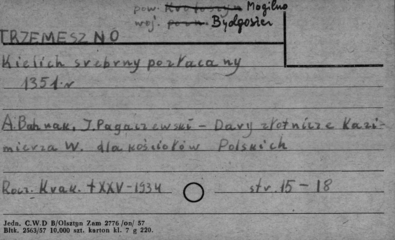 pow. Mogilno
woj. Bydgoski
TRZEMESZNO
Kielich srebrny pozłacany
1351 r
A. Bohnak, J. Pagaczewski – Dary złotnicze Kazi-
mierza W. dla kościołów Polskich
Rocz. Krak. t XXV - 1934 str. 15 – 18
Jedn. C.W.D B/Olsztyn Zam 2776/on/57
Bltk. 2363/57 10,000 szt. karton kl. 7 g 220.